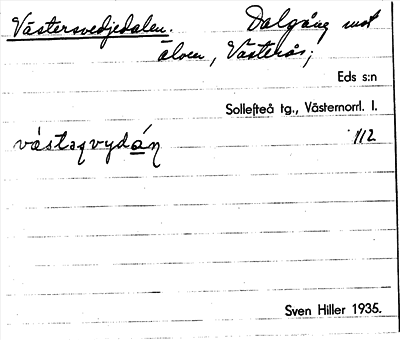 Västersvedjedalen. Dalgång mot
älven, Västerås;
Eds s:n
Sollefteå tg., Västernorrl. l.
112
Sven Hiller 1935.